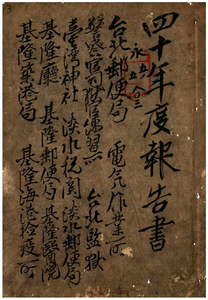 四十年度報告書
台北郵便局 電気作業所
台北監獄
臺灣神社 淡水税関 淡水郵便局
基隆廳 基隆郵便局 基隆醫院
基隆築港局 基隆海港検疫所